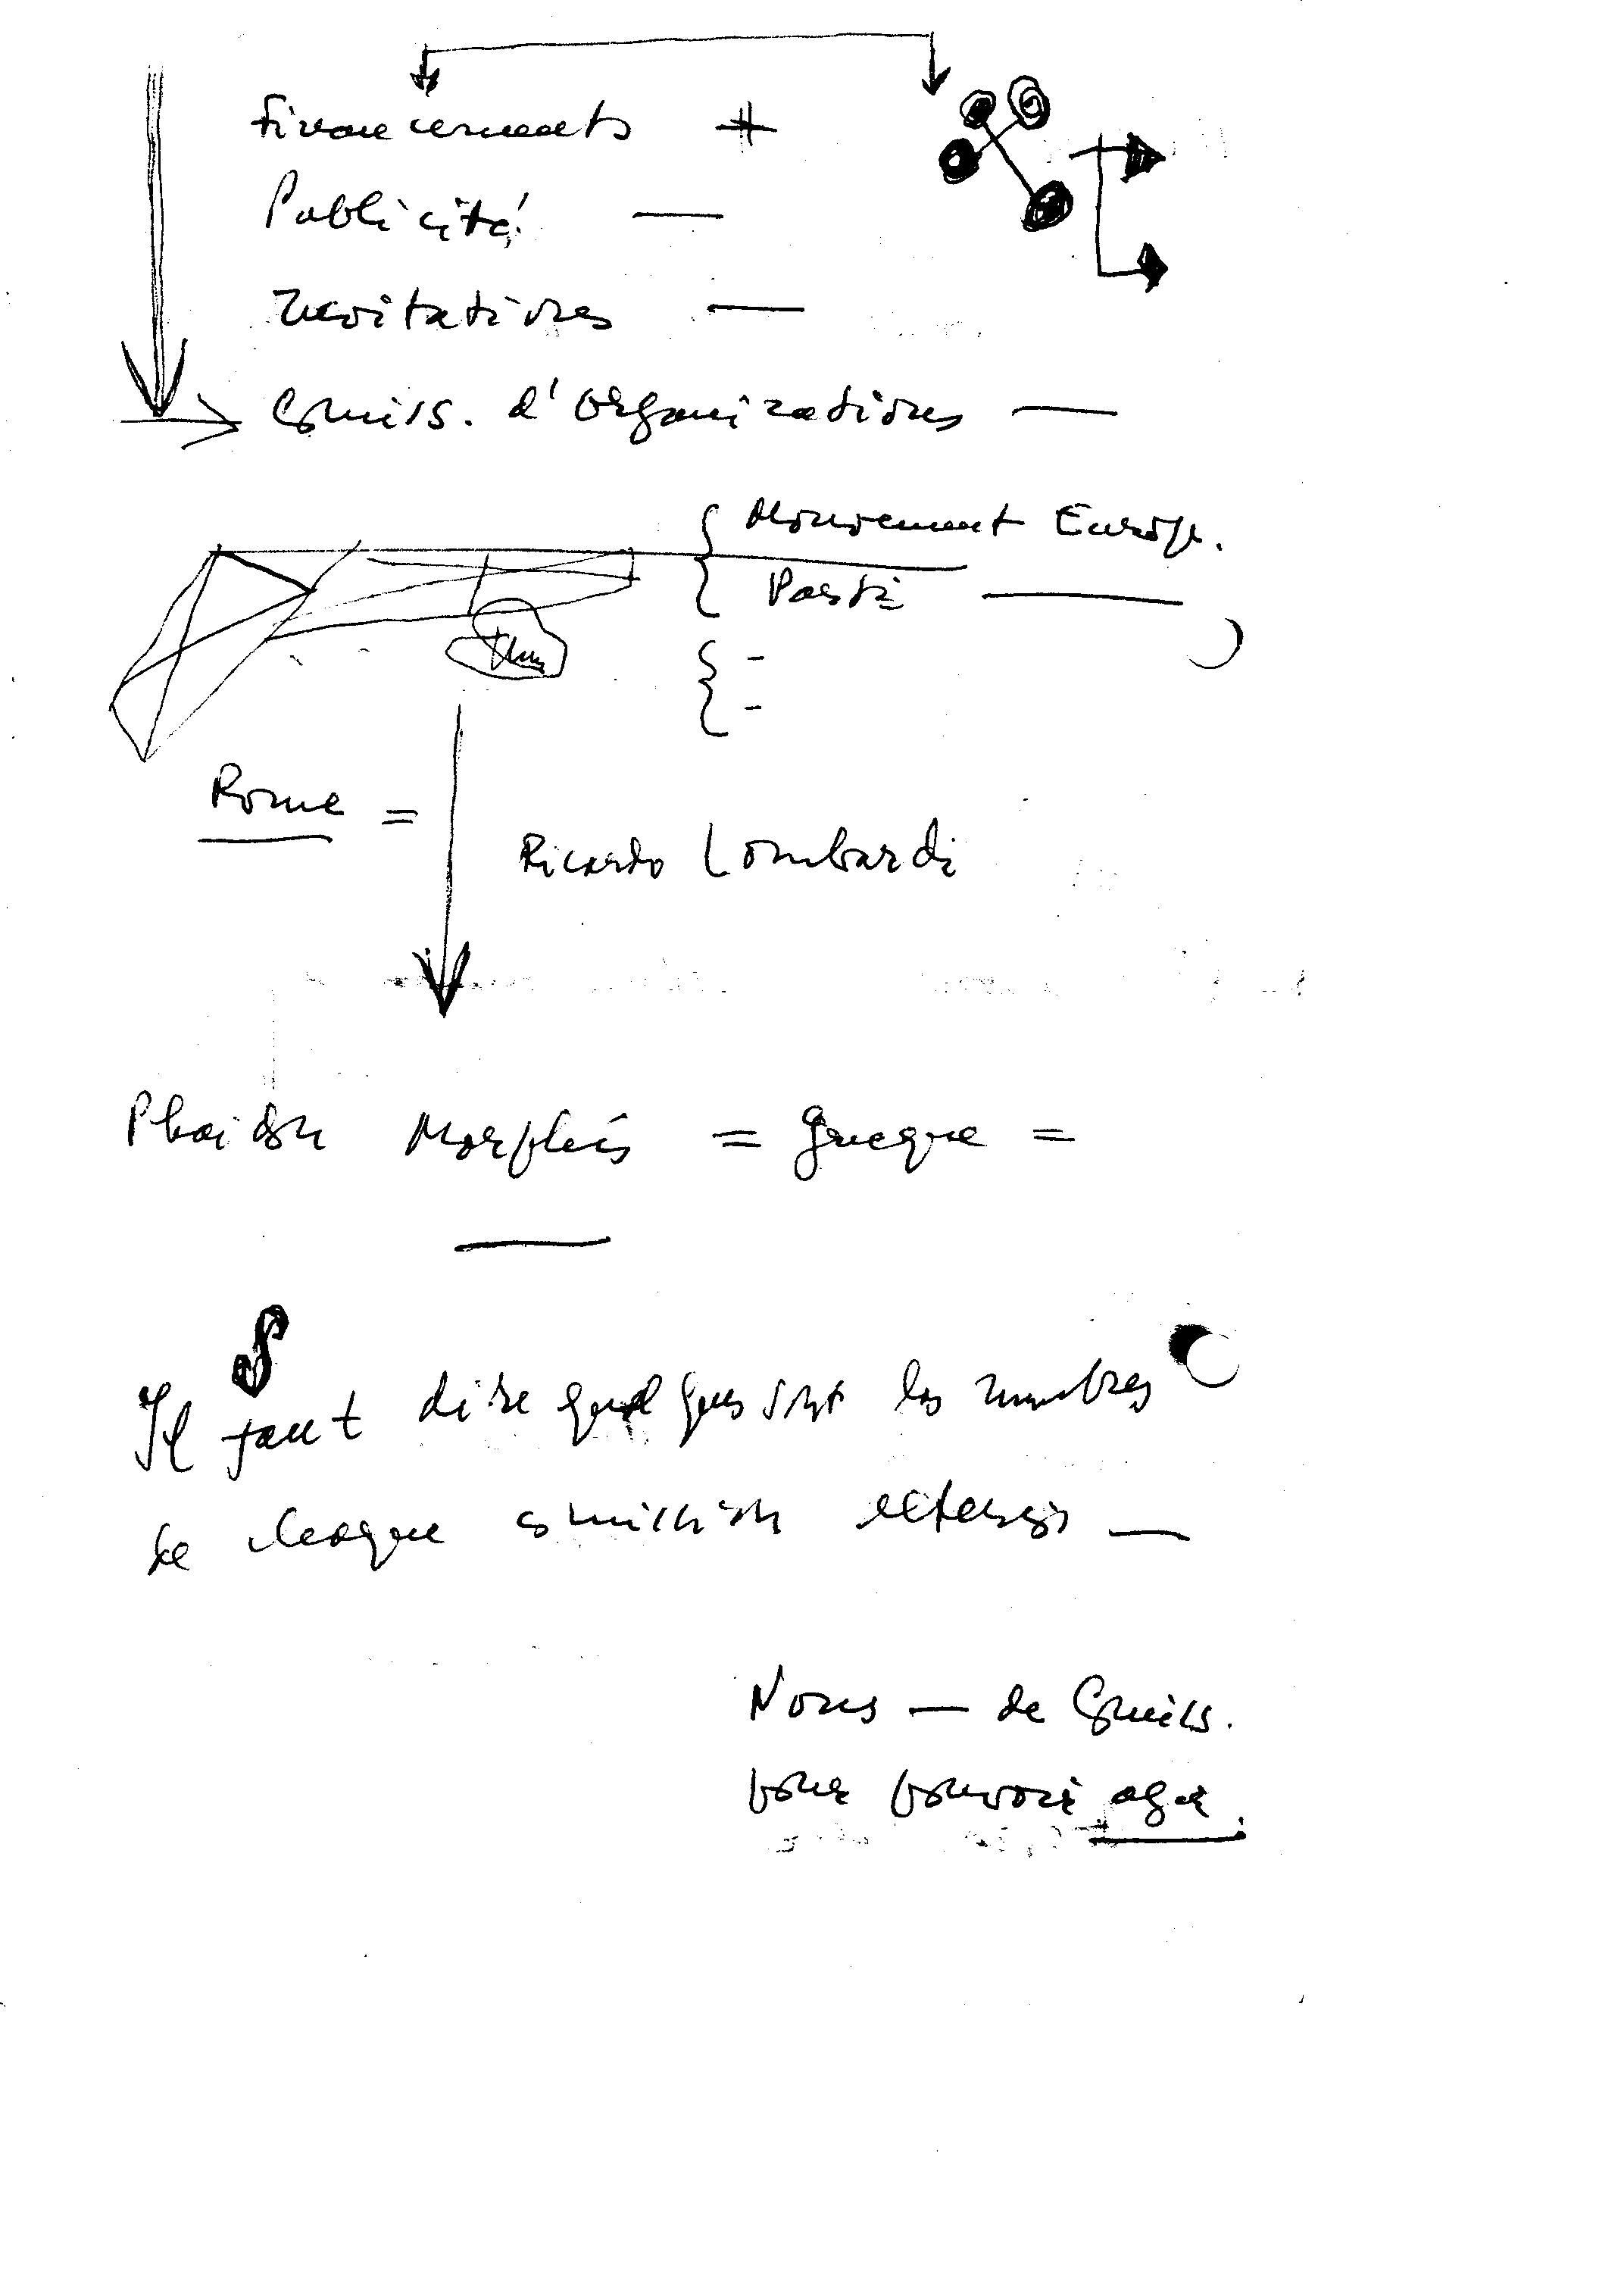 Financements #
Publicité —
Invitations —
Commiss. d'organizations —
{ Mouvement Europ.
Parti —
{ -
-
Rome =
Ricardo Lombardi
Phaidon = Grecque =
Il faut dire quel que sont les membres
de chaque commission
Nous — de Commiss.
pour pouvoir agir.